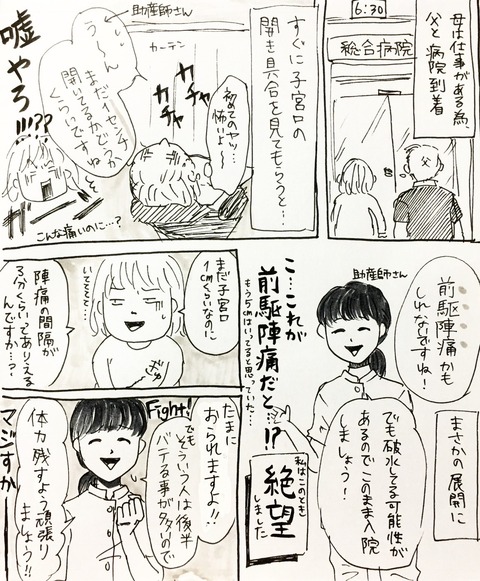 6:30
総合病院
母は仕事がある為、
父と病院到着
父
すぐに子宮口の
開き具合を見てもらうと…
カーテン
カチャ
カチャ
初めてのヤッ…
怖いよ〜
助産師さん
う〜ん
まだ1センチ
開いてるかどうか
くらいですね
嘘やろ!!!??
ガーン
こんな痛いのに…?
助産師さん
前駆陣痛かも
しれないですね!
まさかの展開に
でも破水してる可能性が
あるのでこのまま入院
しましょう!
こ…これが
前駆陣痛だと…!?
もう5cmはいってると思っていた…
私はこのとき
絶望
しました
まだ子宮口
1cmくらいなのに
いてててて…
ぎゅ
陣痛の間隔が
3分くらいってありえる
んですか…?
たまに
おられますよ!!
でも
そういう人は後半
バテる事が多いので
Fight!
体力残すよう頑張り
ましょう!!
マジすか